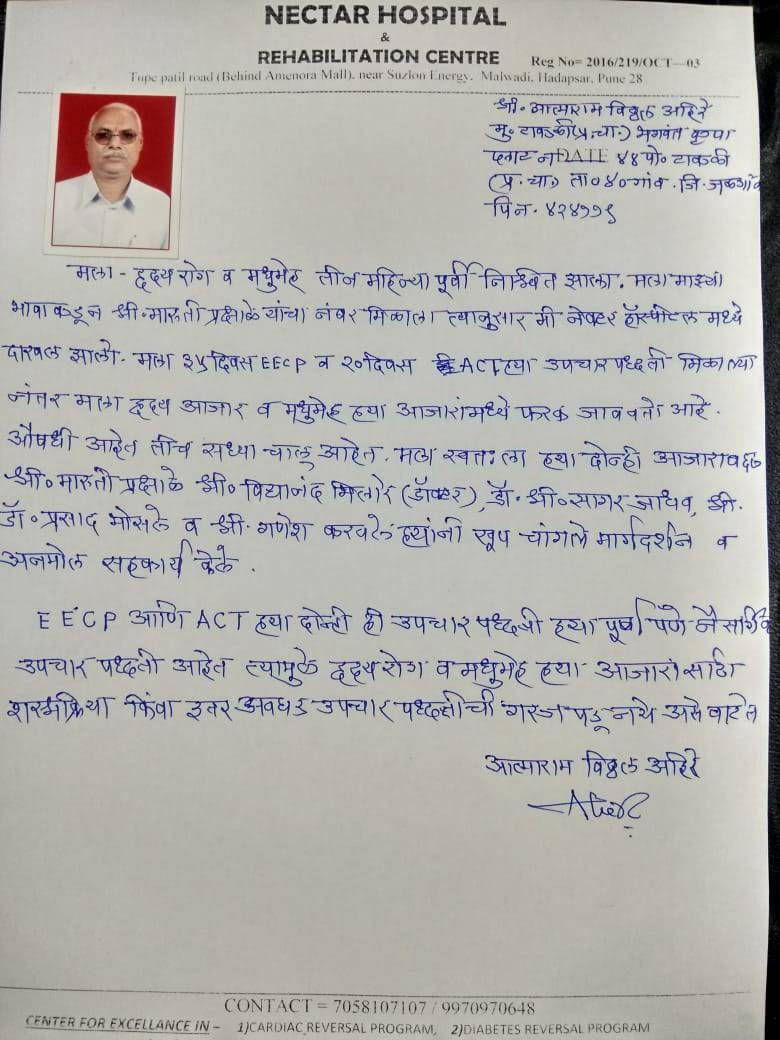 NECTAR HOSPITAL
&
REHABILITATION CENTRE
Reg No= 2016/219/OCT—03
Tupe patil road (Behind Amenora Mall), near Suzlon Energy, Malwadi, Hadapsar, Pune 28
श्री. आत्माराम विठ्ठल अहिरे
मु. टाकळी(प्र.चा.) भगवंत कृपा
प्लाट न DATE ४४ पो. टाकळी
(प्र.चा) ता ४० गांव. जि. जळगांव
पिन. ४२४११९
मला - हृदय रोग व मधुमेह तीन महिन्या पूर्वी निश्चित झाला. मला माझ्या
भावाकडून श्री. मारुती प्रक्षाळे यांचा नंबर मिळाला त्यानुसार मी नेक्टर हॉस्पीटल मध्ये
दाखल झालो. मला ३५ दिवस EECP व २० दिवस ACT ह्या उपचार पध्दती मिळाल्या
नंतर मला हृदय आजार व मधुमेह ह्या आजारांमध्ये फरक जाणवतो आहे.
औषधी आहेत तीच सध्या चालू आहेत. मला स्वतःला ह्या दोन्ही आजाराबद्दल
श्री. मारुती प्रक्षाळे श्री. विद्यानंद (डॉक्टर), डॉ. श्री. सागर जाधव, श्री.
डॉ. प्रसाद भोसले व श्री. गणेश करवले ह्यांनी खूप चांगले मार्गदर्शन व
अनमोल सहकार्य केले.
EECP आणि ACT ह्या दोन्ही ही उपचार पध्दती ह्या पूर्ण पणे नैसर्गिक
उपचार पध्दती आहेत त्यामुळे हृदय रोग व मधुमेह ह्या आजारांसाठी
शस्त्रक्रिया किंवा इतर अवघड उपचार पध्दतीची गरज पडू नये असे वाटते
आत्माराम विठ्ठल अहिरे
CONTACT = 7058107107 / 9970970648
CENTER FOR EXCELLENCE IN – 1)CARDIAC REVERSAL PROGRAM, 2)DIABETES REVERSAL PROGRAM